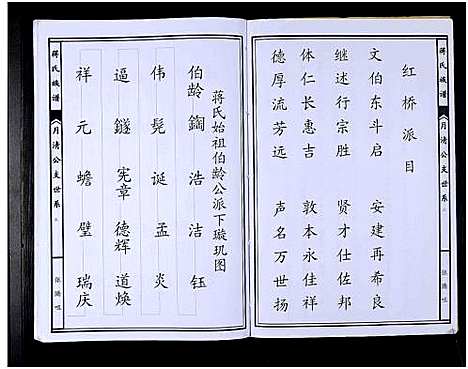 红桥派目
文伯东斗启 安建再希良
继述行宗胜 贤才仕佐邦
体仁长惠吉 敦本永佳祥
德厚流芳远 声名万世扬
蒋氏族谱
月清公支世系
蒋氏始祖伯龄公派下璇玑图
伯龄 鐗 浩 洁 钰
伟 髡 诞 孟 炎
逼 鐩 宪章 德辉 道焕
祥 元 蟾 璧 瑞庆
蒋氏族谱
月清公支世系